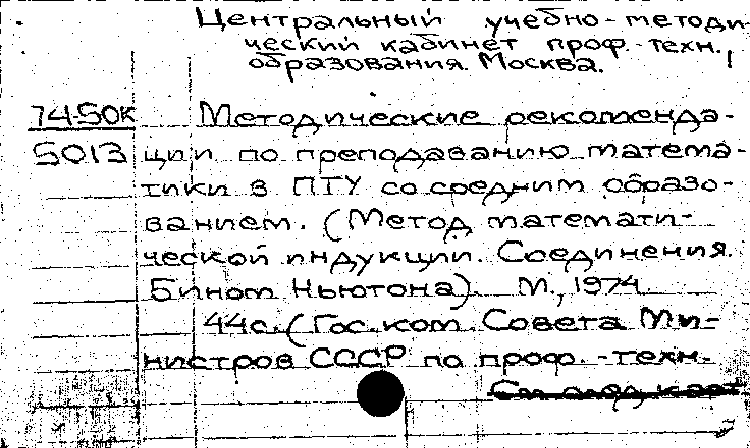 Центральный учебно-методи
ческий кабинет проф.-техн.
образования. Москва.
74-50к Методические рекоменда-
5013 ции по преподаванию матема-
тики в ПТУ со средним образо-
ванием. (Метод математи-
ческой индукции. Соединения.
Бином Ньютона). М., 1974.
44с. (Гос. ком. Совета Ми-
нистров СССР по проф.-техн.
См. след. карт